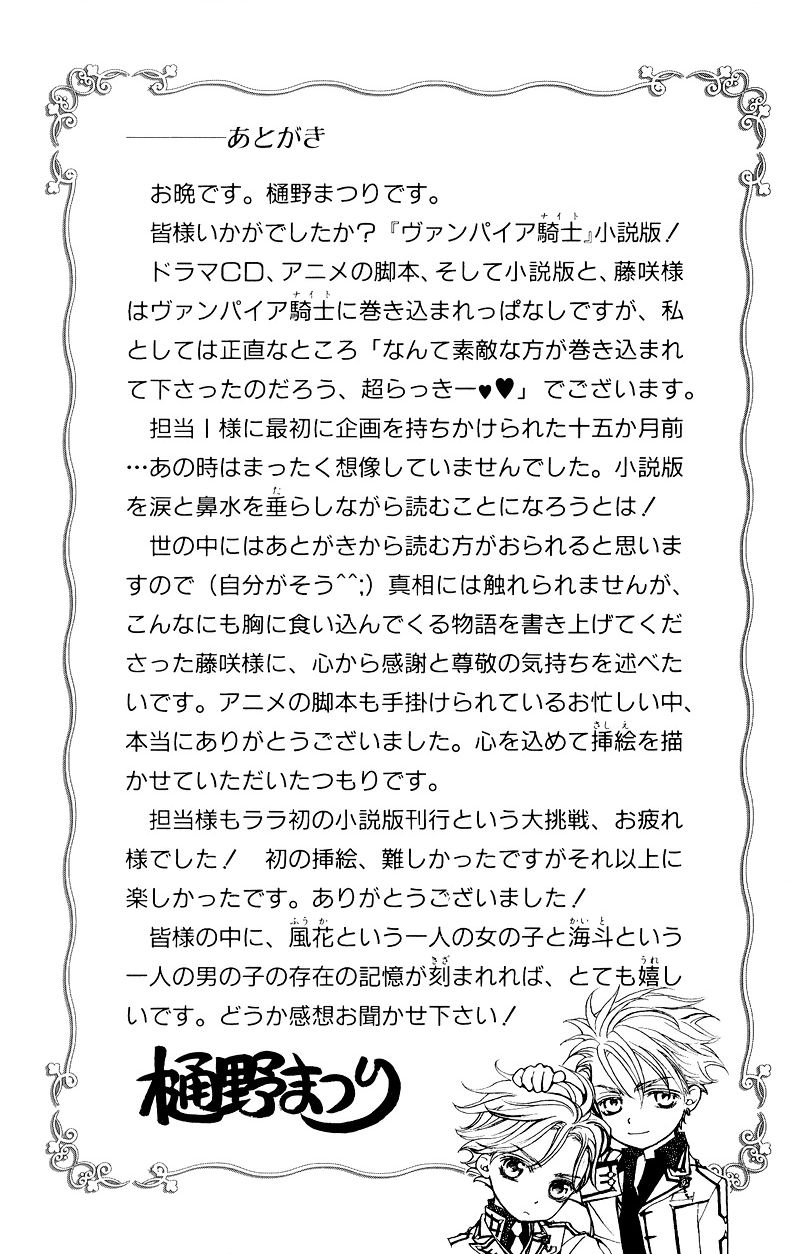 ————あとがき
お晩です。樋野まつりです。
皆様いかがでしたか？『ヴァンパイア騎士』小説版！
ドラマCD、アニメの脚本、そして小説版と、藤咲様
はヴァンパイア騎士に巻き込まれっぱなしですが、私
としては正直なところ「なんて素敵な方が巻き込まれ
て下さったのだろう、超らっきー♥♥」でございます。
担当I様に最初に企画を持ちかけられた十五か月前
…あの時はまったく想像していませんでした。小説版
を涙と鼻水を垂らしながら読むことになろうとは！
世の中にはあとがきから読む方がおられると思いま
すので（自分がそう^^;）真相には触れられませんが、
こんなにも胸に食い込んでくる物語を書き上げてくだ
さった藤咲様に、心から感謝と尊敬の気持ちを述べた
いです。アニメの脚本も手掛けられているお忙しい中、
本当にありがとうございました。心を込めて挿絵を描
かせていただいたつもりです。
担当様もララ初の小説版刊行という大挑戦、お疲れ
様でした！　初の挿絵、難しかったですがそれ以上に
楽しかったです。ありがとうございました！
皆様の中に、風花という一人の女の子と海斗という
一人の男の子の存在の記憶が刻まれれば、とても嬉し
いです。どうか感想お聞かせ下さい！
樋野まつり